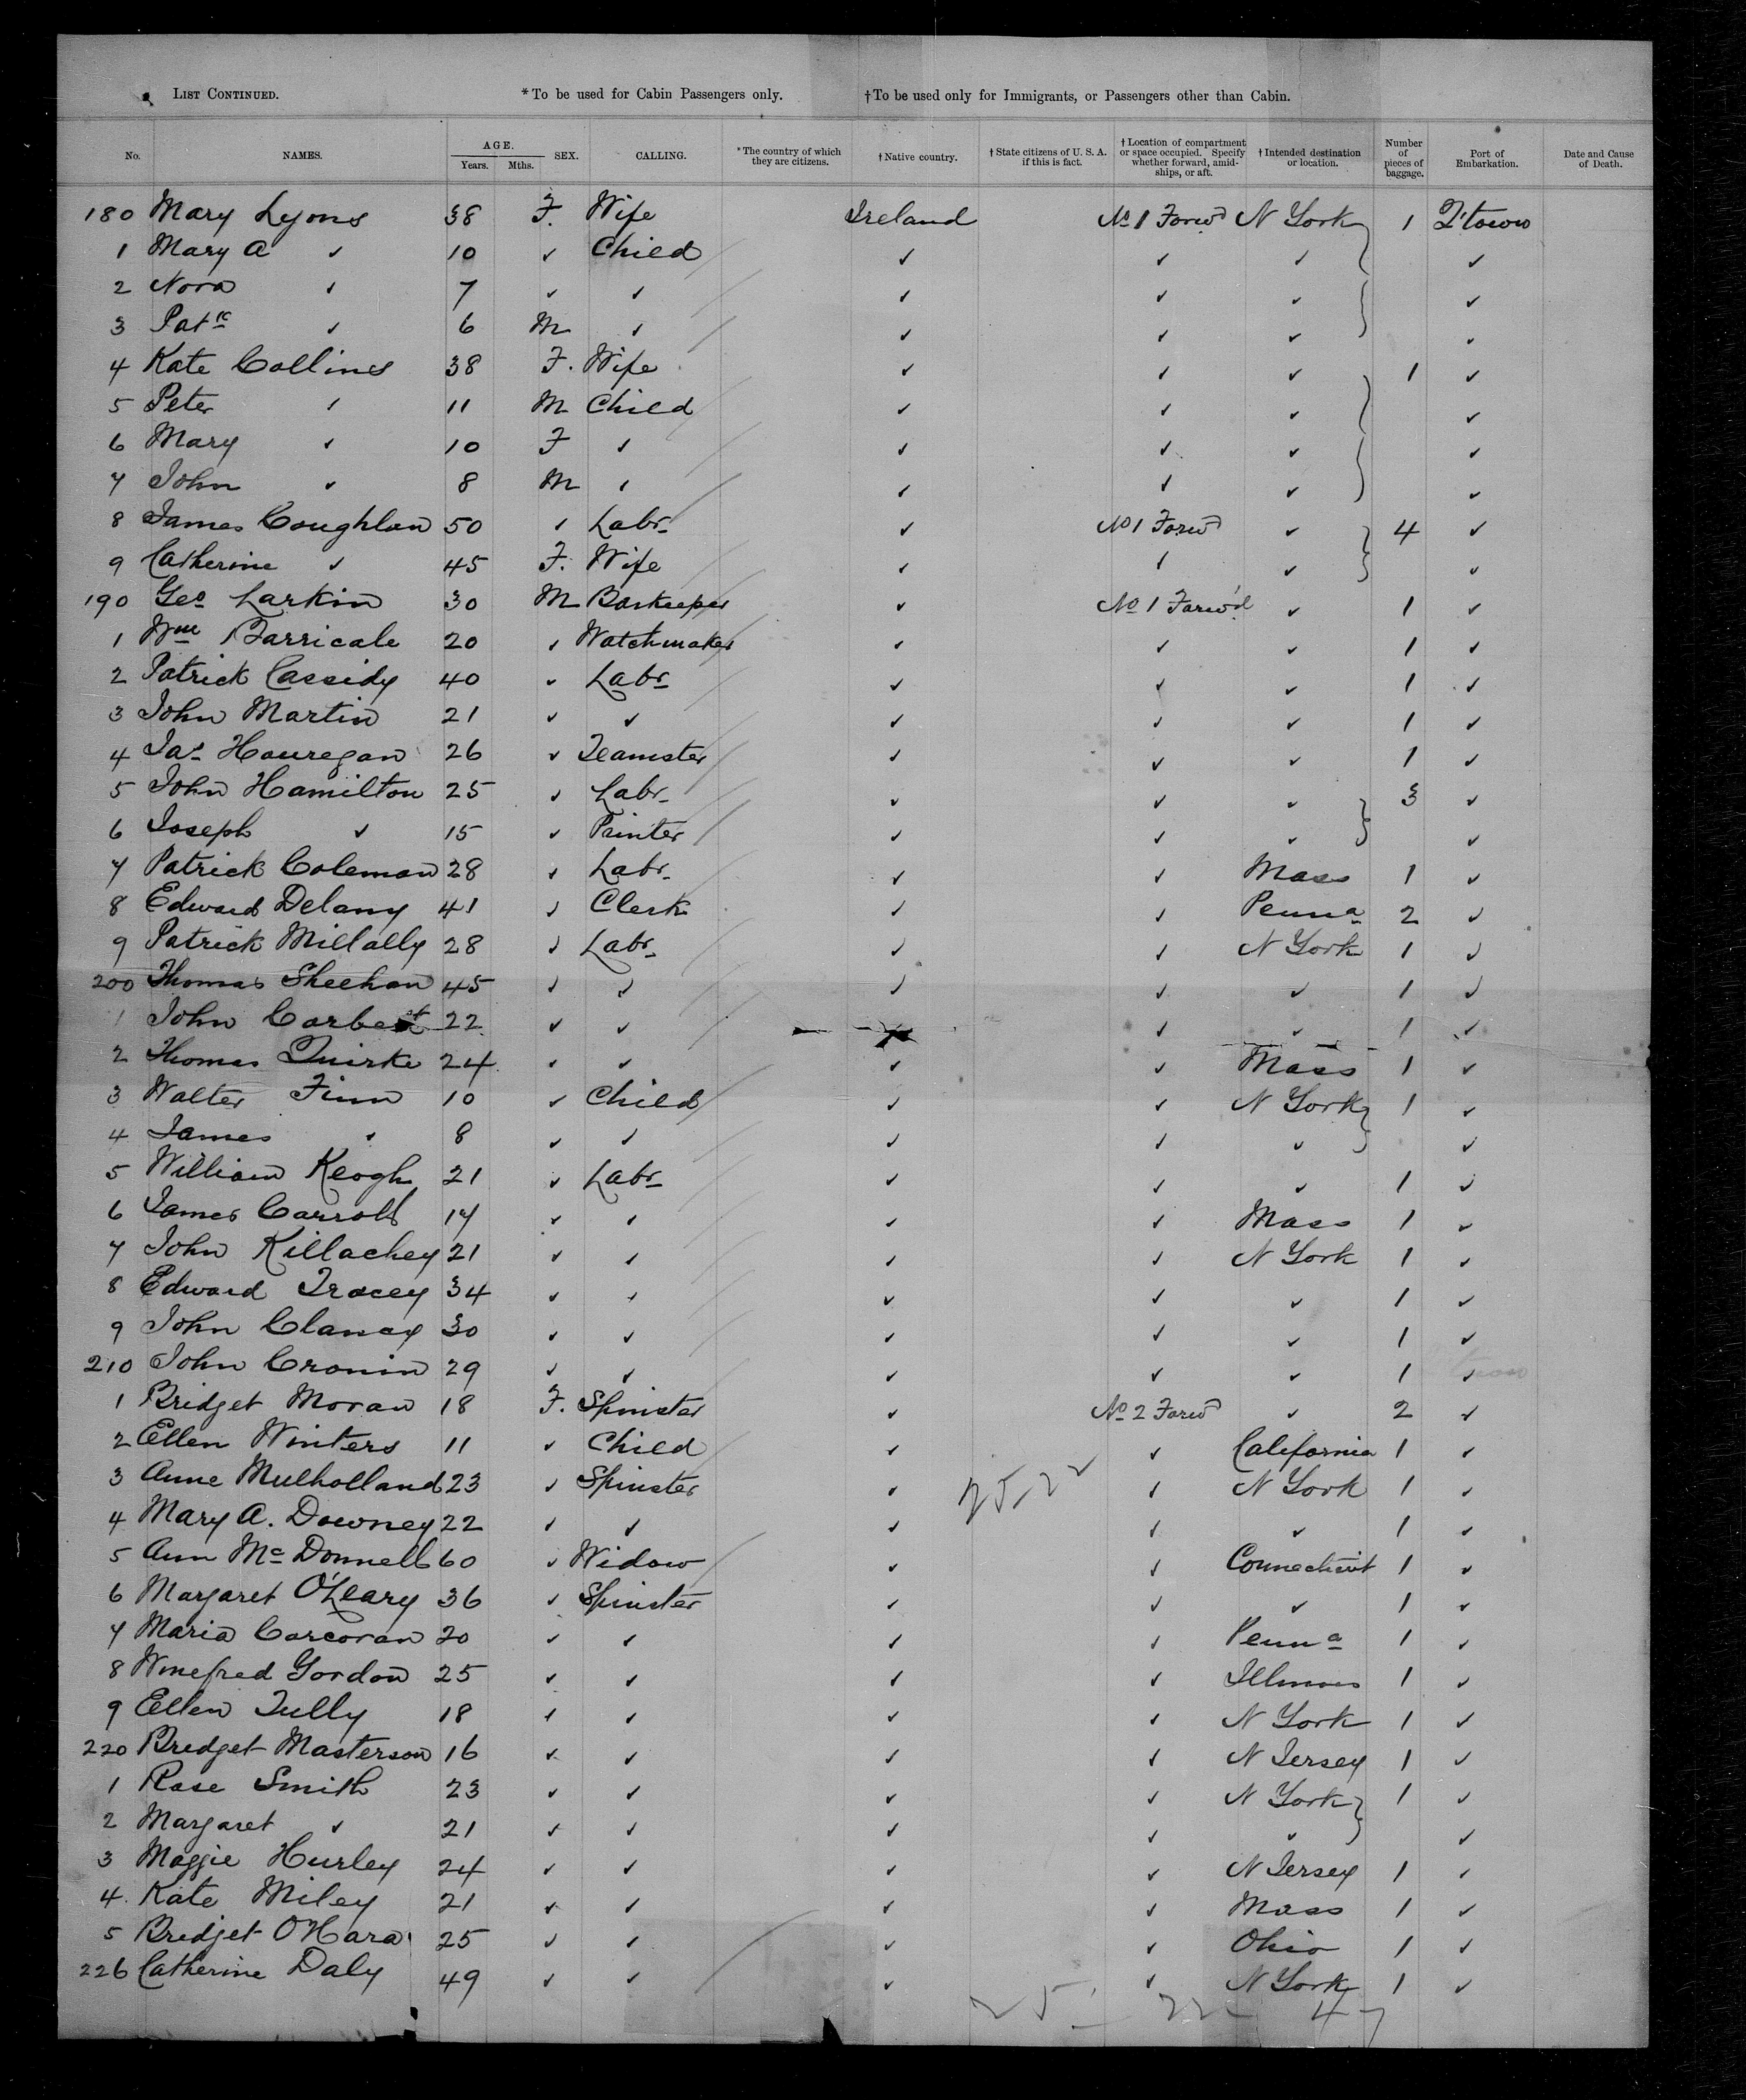 LIST CONTINUED. *To be used for Cabin Passengers only. †To be used only for Immigrants, or Passengers other than Cabin.
No. NAMES. AGE. Years. Mths. SEX. CALLING. *The country of which they are citizens. †Native country. †State citizens of U. S. A. if this is fact. †Location of compartment or space occupied. Specify whether forward, amidships, or aft. †Intended destination or location. Number of pieces of baggage. Port of Embarkation. Date and Cause of Death.
180 Mary Lyons 38 F. Wife Ireland No 1 Forwd N York 1 Q'town
1 Mary A ✓ 10 ✓ Child ✓ ✓ ✓ ✓
2 Nora ✓ 7 ✓ ✓ ✓ ✓ ✓ ✓
3 Patk ✓ 6 M ✓ ✓ ✓ ✓ ✓
4 Kate Collins 38 F. Wife ✓ ✓ ✓ 1 ✓
5 Peter ✓ 11 M Child ✓ ✓ ✓ ✓
6 Mary ✓ 10 F ✓ ✓ ✓ ✓ ✓
7 John ✓ 8 M ✓ ✓ ✓ ✓ ✓
8 James Coughlan 50 ✓ Labr ✓ No 1 Forwd ✓ 4 ✓
9 Catherine ✓ 45 F. Wife ✓ ✓ ✓ ✓
190 Geo Larkin 30 M Barkeeper ✓ No 1 Forw'd ✓ 1 ✓
1 Wm Barricale 20 ✓ Watchmaker ✓ ✓ ✓ 1 ✓
2 Patrick Cassidy 40 ✓ Labr ✓ ✓ ✓ 1 ✓
3 John Martin 21 ✓ ✓ ✓ ✓ ✓ 1 ✓
4 Jas Houregan 26 ✓ Teamster ✓ ✓ ✓ 1 ✓
5 John Hamilton 25 ✓ Labr ✓ ✓ ✓ 3 ✓
6 Joseph ✓ 15 ✓ Printer ✓ ✓ ✓ ✓
7 Patrick Coleman 28 ✓ Labr ✓ ✓ Mass 1 ✓
8 Edward Delany 41 ✓ Clerk ✓ ✓ Penna 2 ✓
9 Patrick Millally 28 ✓ Labr ✓ ✓ N York 1 ✓
200 Thomas Sheehan 45 ✓ ✓ ✓ ✓ ✓ 1 ✓
1 John Corbett 22 ✓ ✓ ✓ ✓ 1 ✓
2 Thomas Quirke 24 ✓ ✓ ✓ ✓ Mass 1 ✓
3 Walter Finn 10 ✓ Child ✓ ✓ N York 1 ✓
4 James ✓ 8 ✓ ✓ ✓ ✓ ✓ ✓
5 William Keogh 21 ✓ Labr ✓ ✓ ✓ 1 ✓
6 James Carroll 17 ✓ ✓ ✓ ✓ Mass 1 ✓
7 John Killachey 21 ✓ ✓ ✓ ✓ N York 1 ✓
8 Edward Tracey 34 ✓ ✓ ✓ ✓ ✓ 1 ✓
9 John Clancy 30 ✓ ✓ ✓ ✓ ✓ 1 ✓
210 John Cronin 29 ✓ ✓ ✓ ✓ ✓ 1 ✓
1 Bridget Moran 18 F. Spinster ✓ No 2 Forwd ✓ 2 ✓
2 Ellen Winters 11 ✓ Child ✓ ✓ California 1 ✓
3 Anne Mulholland 23 ✓ Spinster ✓ ✓ N York 1 ✓
4 Mary A. Downey 22 ✓ ✓ ✓ ✓ ✓ 1 ✓
5 Ann McDonnell 60 ✓ Widow ✓ ✓ Connecticut 1 ✓
6 Margaret O'Leary 36 ✓ Spinster ✓ ✓ ✓ 1 ✓
7 Maria Corcoran 20 ✓ ✓ ✓ ✓ Penna 1 ✓
8 Winefred Gordon 25 ✓ ✓ ✓ ✓ Illinois 1 ✓
9 Ellen Tully 18 ✓ ✓ ✓ ✓ N York 1 ✓
220 Bridget Masterson 16 ✓ ✓ ✓ ✓ N Jersey 1 ✓
1 Rose Smith 23 ✓ ✓ ✓ ✓ N York 1 ✓
2 Margaret ✓ 21 ✓ ✓ ✓ ✓ ✓ ✓
3 Maggie Hurley 24 ✓ ✓ ✓ ✓ N Jersey 1 ✓
4 Kate Miley 21 ✓ ✓ ✓ ✓ Mass 1 ✓
5 Bridget O'Hara 25 ✓ ✓ ✓ ✓ Ohio 1 ✓
226 Catherine Daly 49 ✓ ✓ ✓ ✓ N York 1 ✓
25 22 47